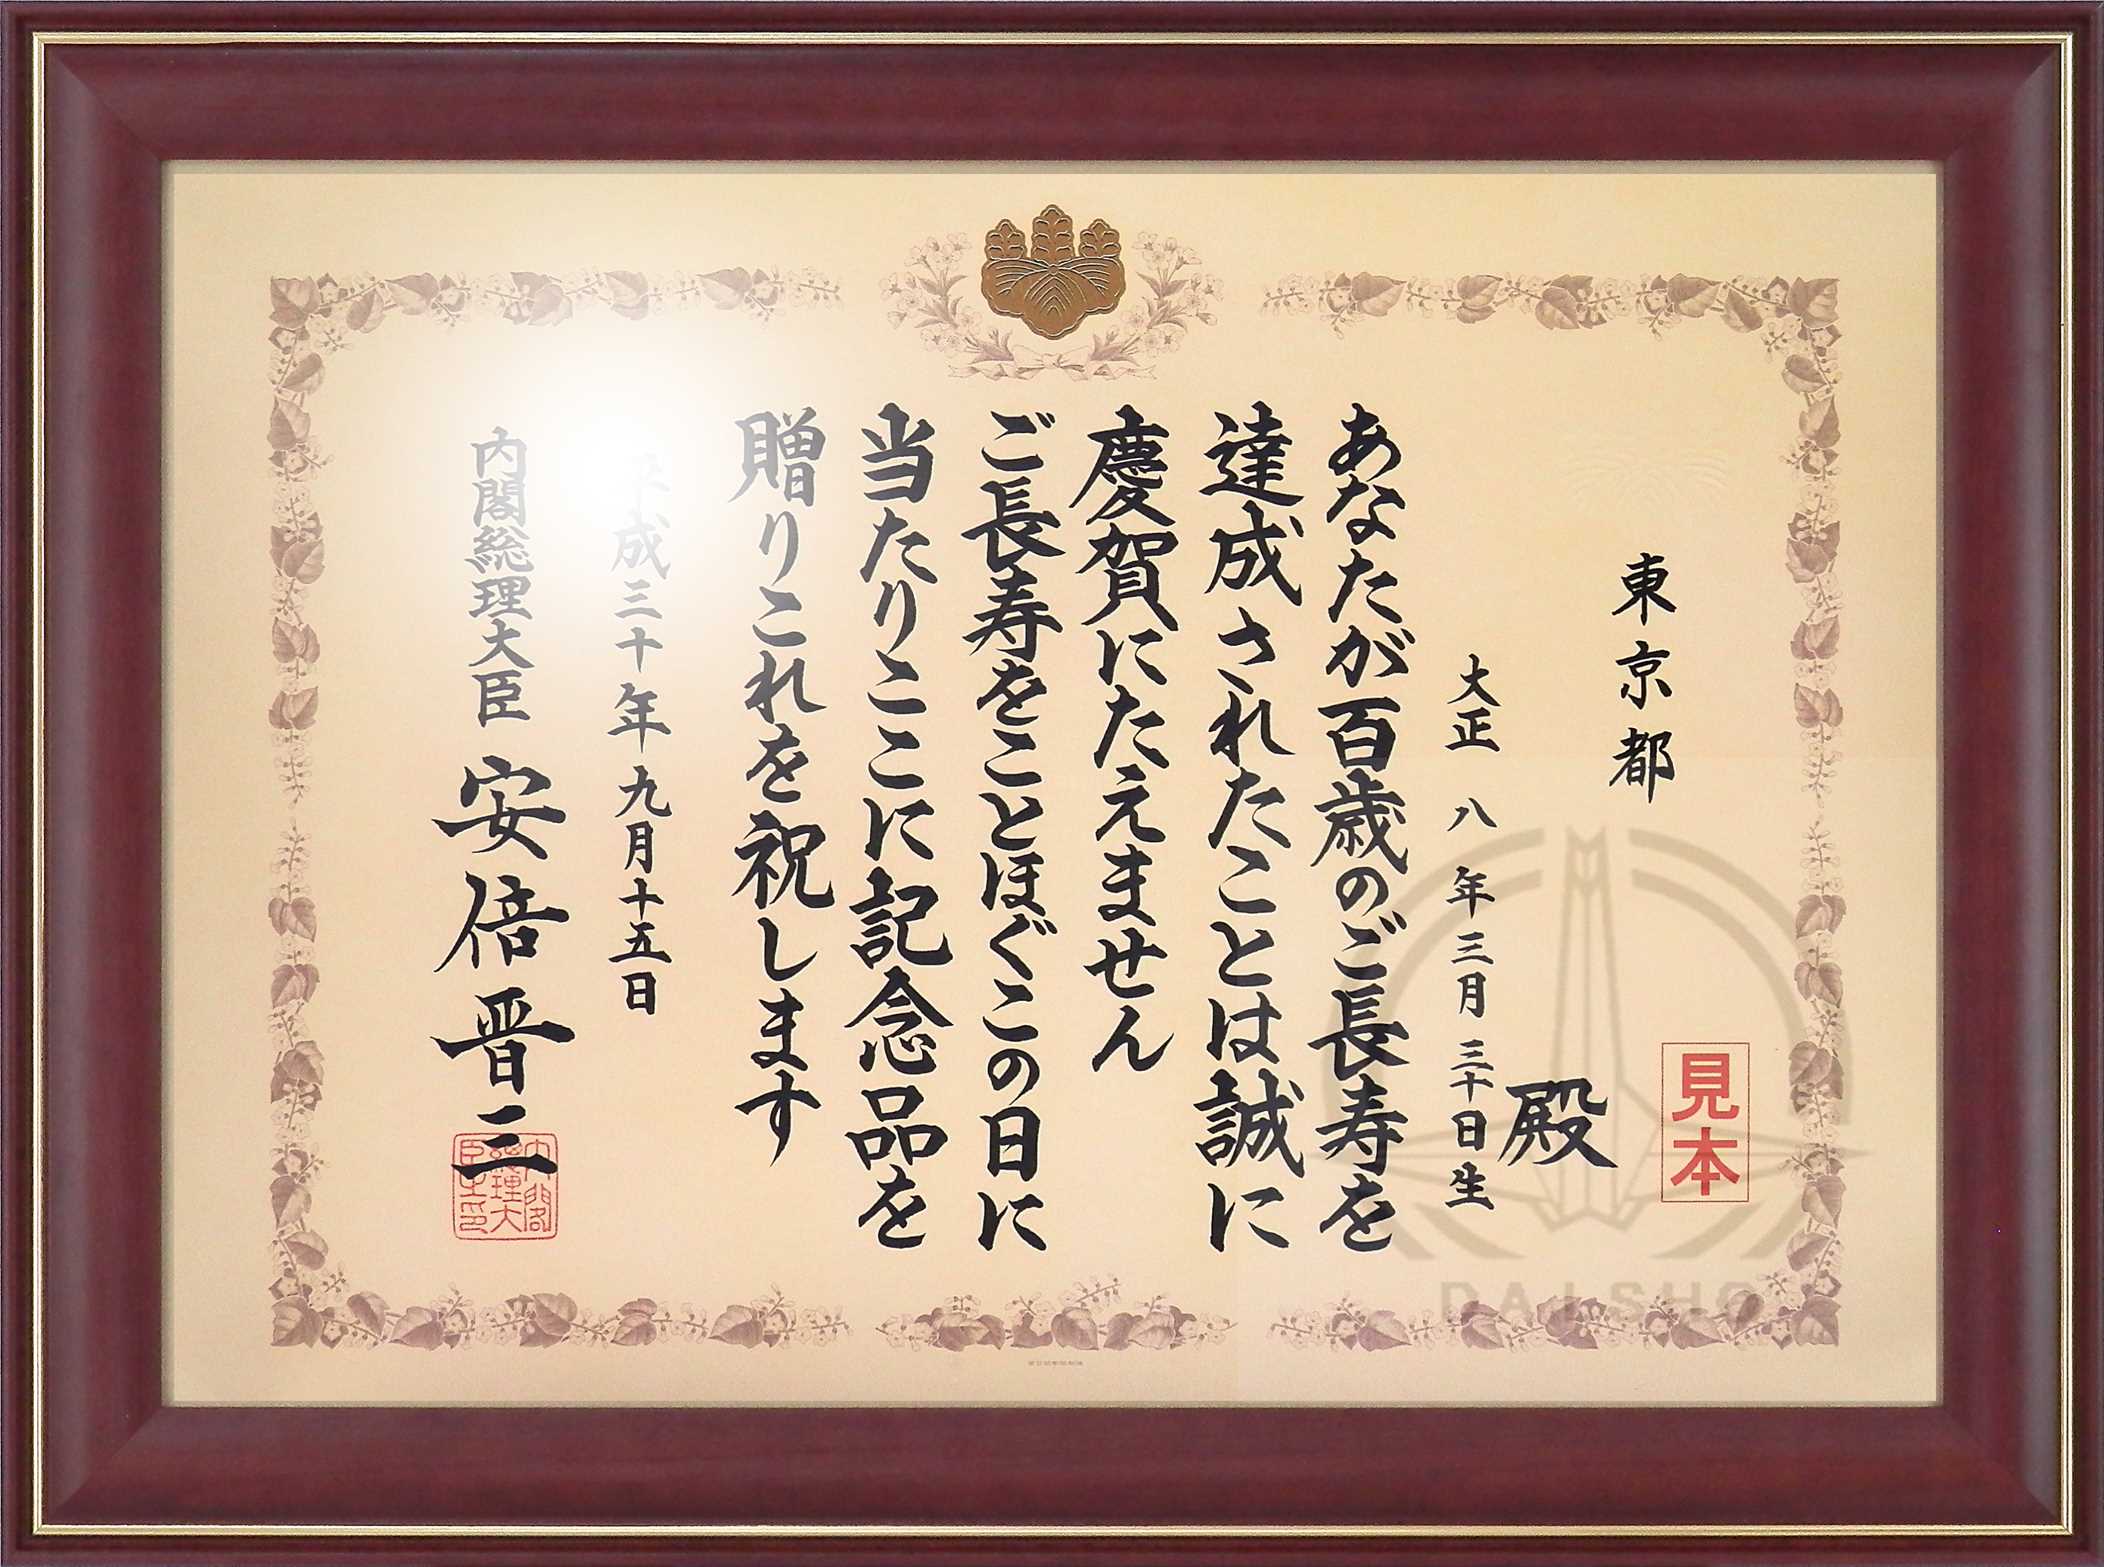 東京都
殿
大正八年三月三十日生
あなたが百歳のご長寿を
達成されたことは誠に
慶賀にたえません
ご長寿をことほぐこの日に
当たりここに記念品を
贈りこれを祝します
平成三十年九月十五日
内閣総理大臣 安倍晋三
内閣総理大臣之印
見本
DAISHO